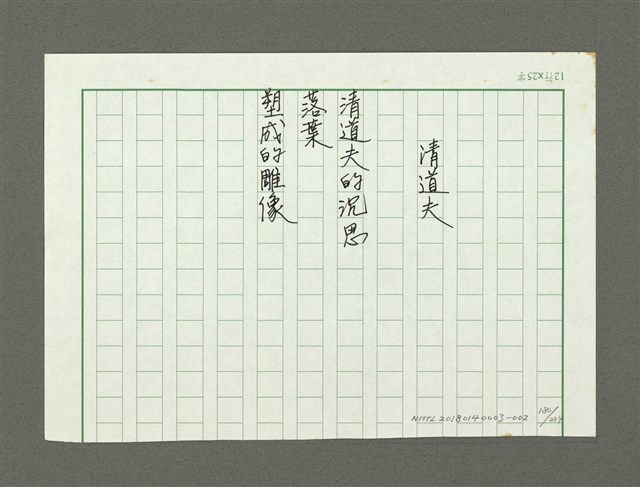 12行×25字
清道夫
清道夫的沉思
落葉
塑成的雕像
NMTL20180140003-002